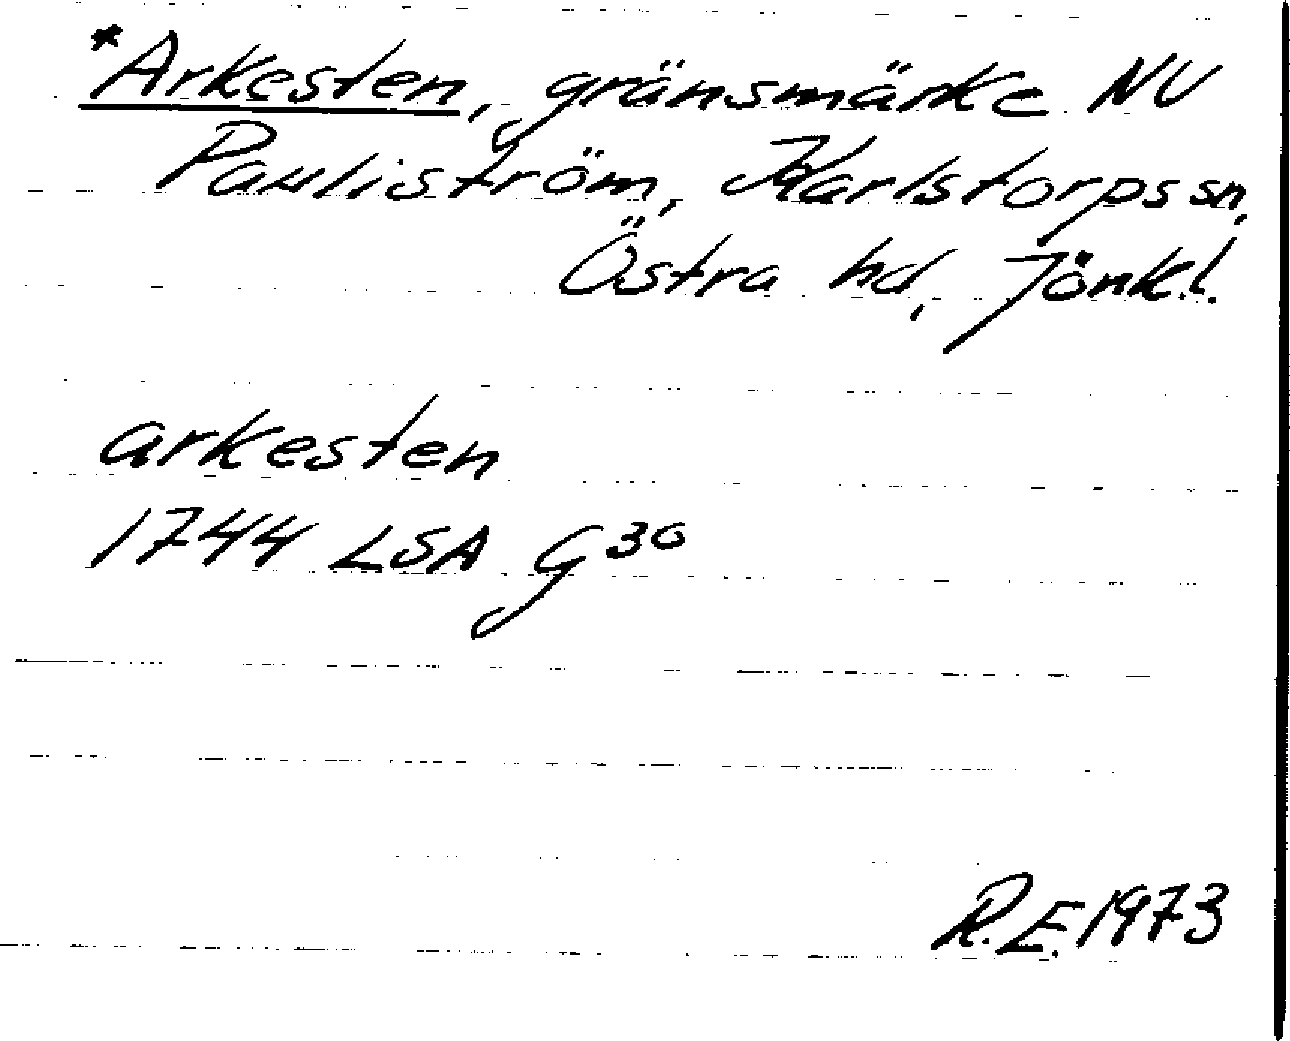 *Arkesten, gränsmärke NV
Pauliström, Karlstorps sn,
Östra hd, Jönk.l.
arkesten
1744 LSA G30
R.E. 1973